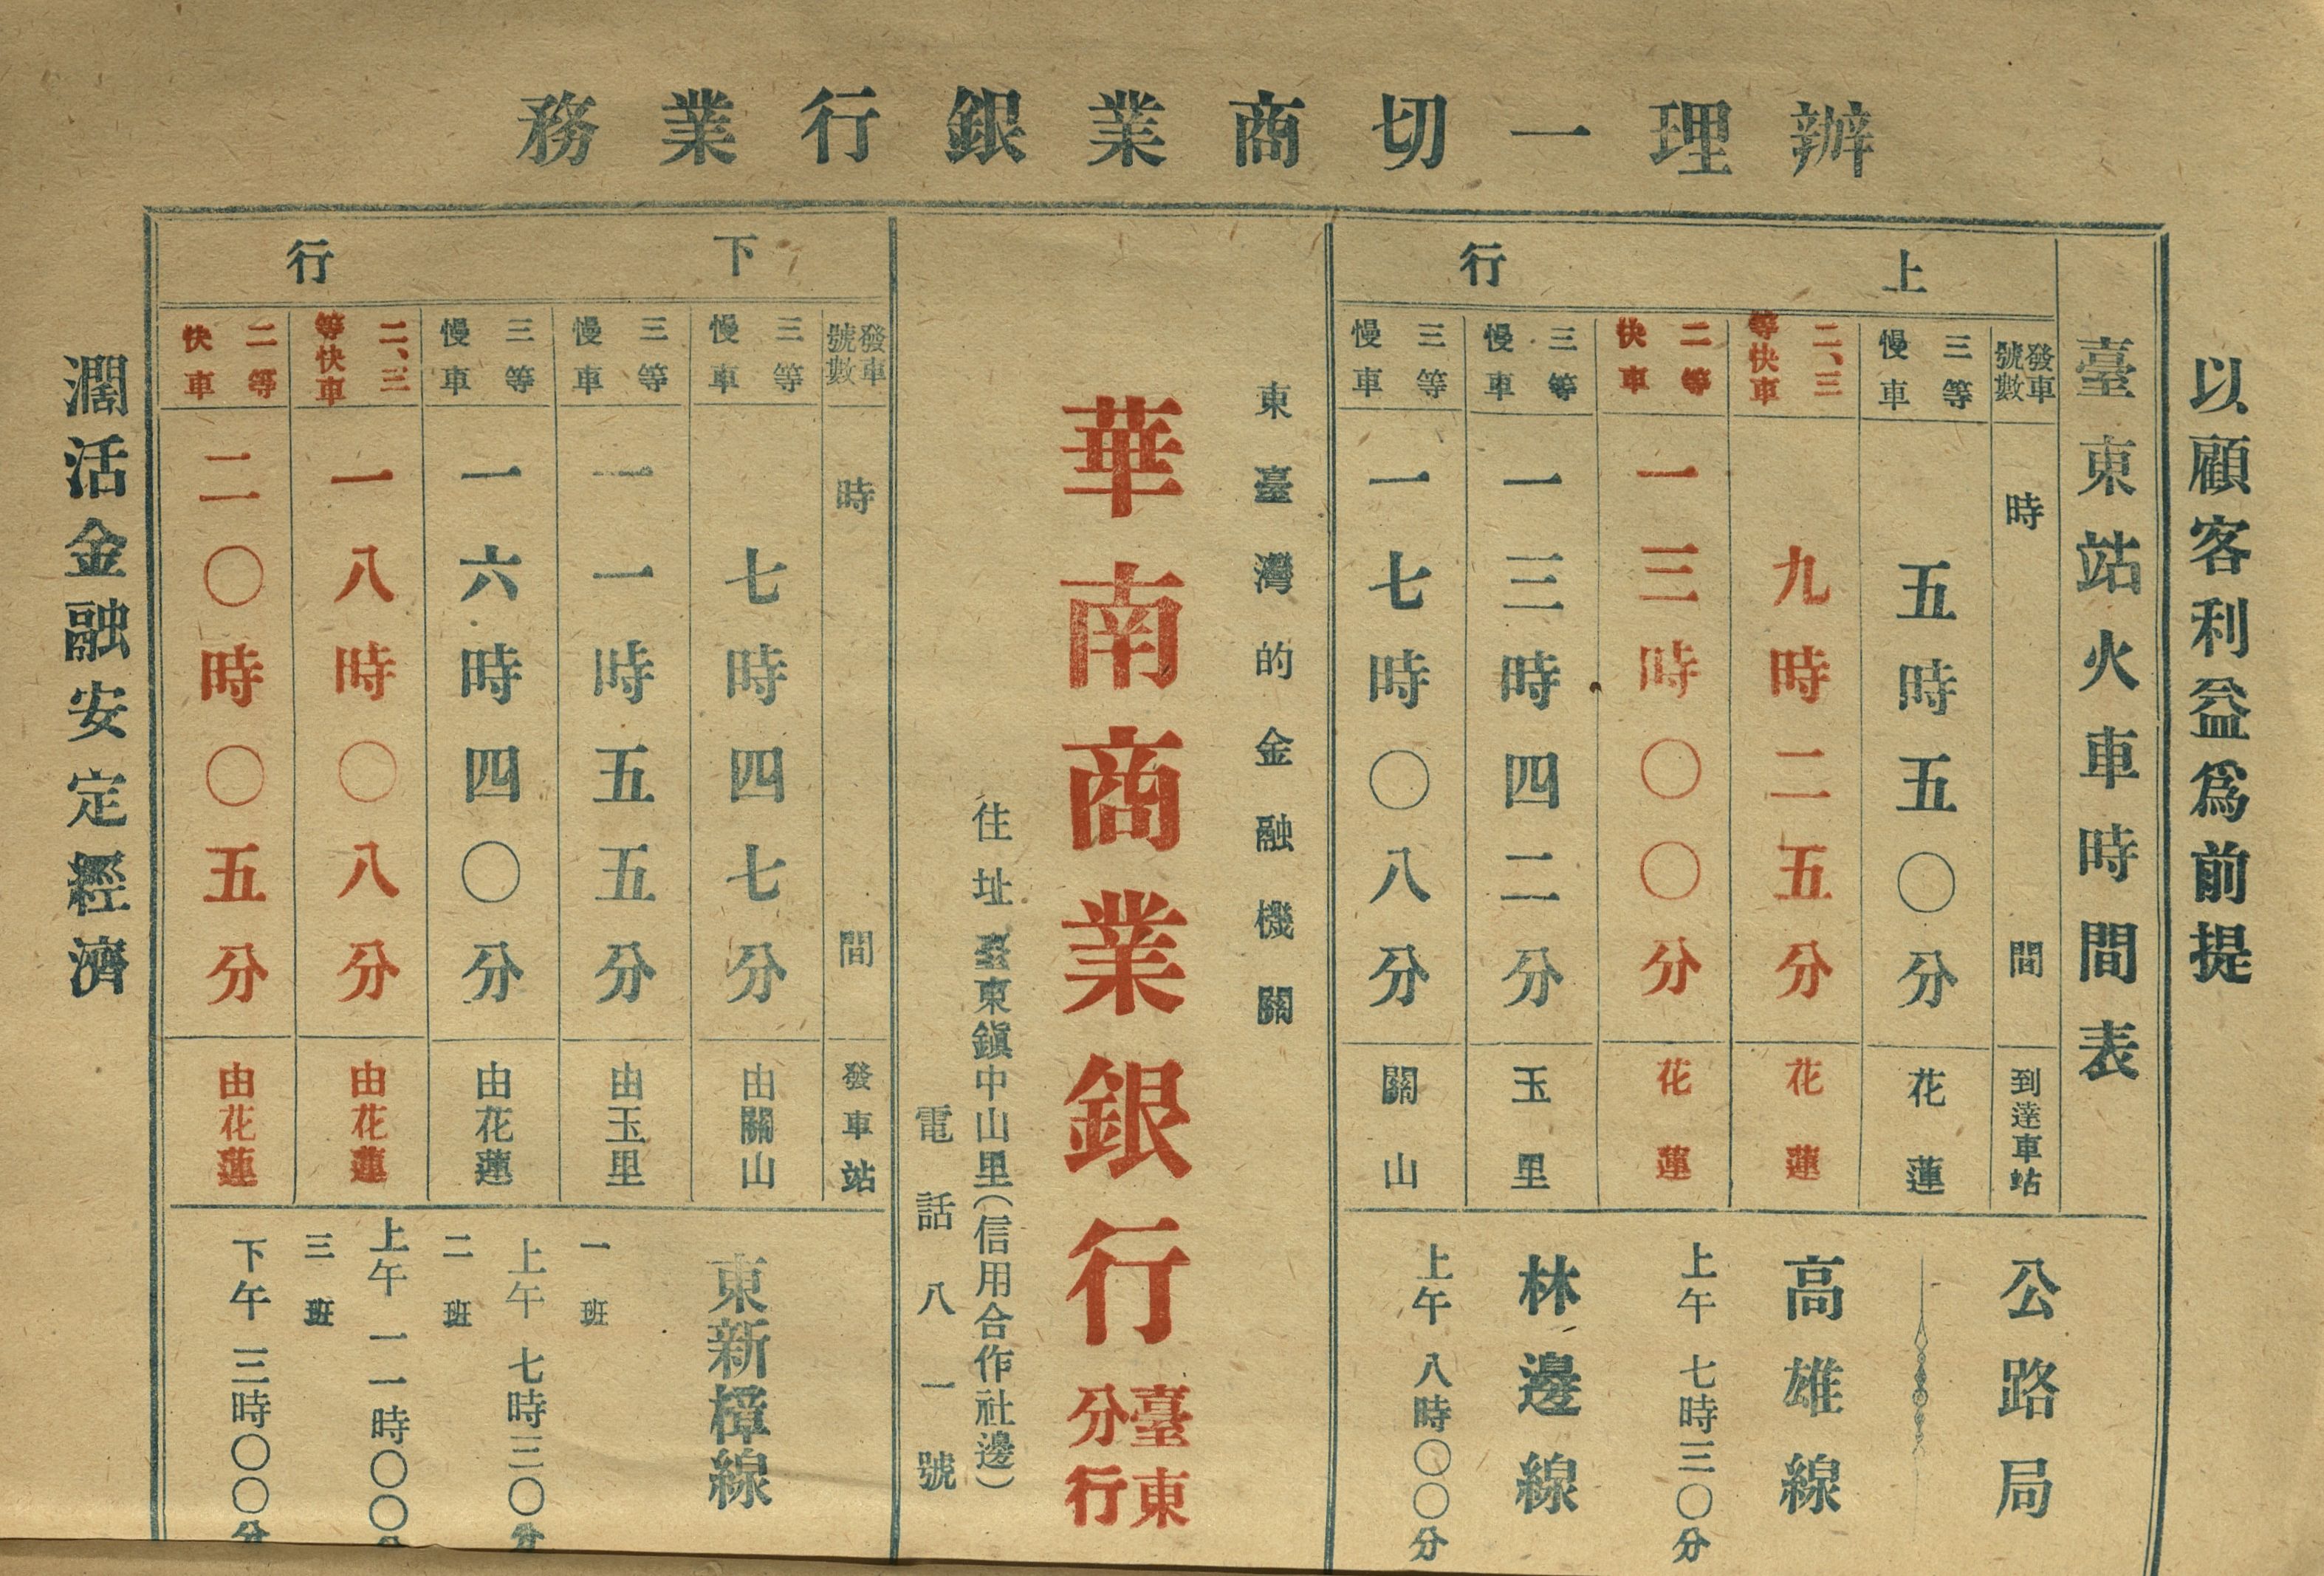 辦理一切商業銀行業務
以顧客利益為前提
臺東站火車時間表
上行
發車號數 時間 到達車站
三等慢車 五時五〇分 花蓮
二、三等快車 九時二五分 花蓮
二等快車 一三時〇〇分 花蓮
三等慢車 一三時四二分 玉里
三等慢車 一七時〇八分 關山
公路局
高雄線
上午 七時三〇分
林邊線
上午 八時〇〇分
東臺灣的金融機關
華南商業銀行臺東分行
住址 臺東鎭中山里(信用合作社邊)
電話八一號
下行
發車號數 時間 發車站
三等慢車 七時四七分 由關山
三等慢車 一一時五五分 由玉里
三等慢車 一六時四〇分 由花蓮
二、三等快車 一八時〇八分 由花蓮
二等快車 二〇時〇五分 由花蓮
東新樟線
一班
上午 七時三〇分
二班
上午 一一時〇〇分
三班
下午 三時〇〇分
濶活金融安定經濟